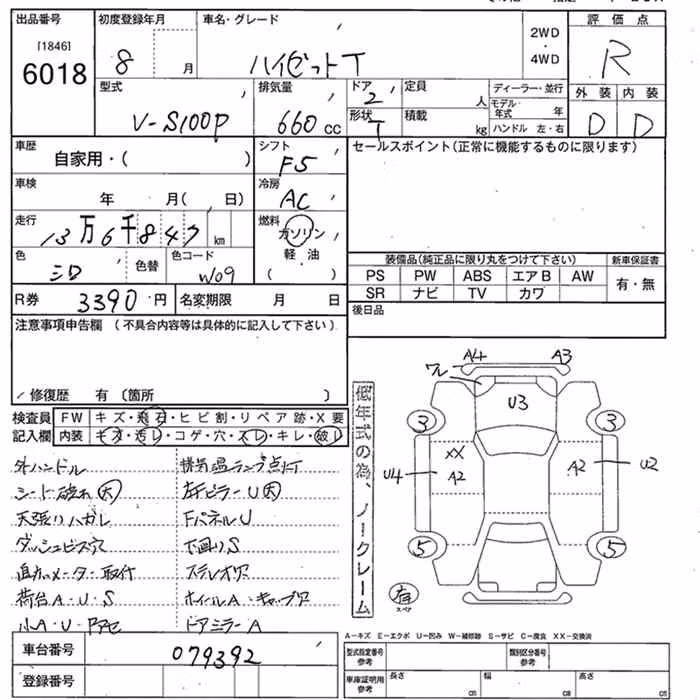 出品番号 初度登録年月 車名・グレード 評価点
[1846]
6018 8 月 ハイゼットT 2WD ・ 4WD R
型式 排気量 ドア 定員 ディーラー・並行 外装 内装
V-S100P 660 cc 2 人 モデル年式 年 D D
形状 T 積載 kg ハンドル 左・右
車歴 自家用・( ) シフト F5 セールスポイント(正常に機能するものに限ります)
車検 年 月( 、 日) 冷房 AC
走行 13万6千847 km 燃料 ガソリン 軽油 ( )
色 シロ 色替 色コード W09
装備品(純正品に限り丸をつけて下さい) 新車保証書
PS PW ABS エアB AW 有・無
SR ナビ TV カワ
R券 3390円 名変期限 月 日 後日品
注意事項申告欄(不具合内容等は具体的に記入して下さい)
修復歴 有 (箇所 )
検査員記入欄 FW キズ・飛石・ヒビ割・リペア跡・X要
内装 キズ・汚レ・コゲ・穴・スレ・キレ・破レ
外ハンドル 排気温ランプ点灯
シート破れ大
天張りハガレ FパネルU
ダッシュビス穴 下廻りS
メーター取付 ステレオ穴
荷台A・U・S ホイールA・キャップ穴
小A・U ドアミラーA
低年式の為、ノークレーム
ワレ A4 A3
U3
3 3
XX
U4 A2 A2 U2
5 5
有
スペア
A-キズ E-エクボ U-凹み W-補修跡 S-サビ C-腐食 XX-交換済
車台番号 079392
型式指定番号 参考 類別区分番号 参考
登録番号
車庫証明用 参考 長さ cm 幅 cm 高さ cm